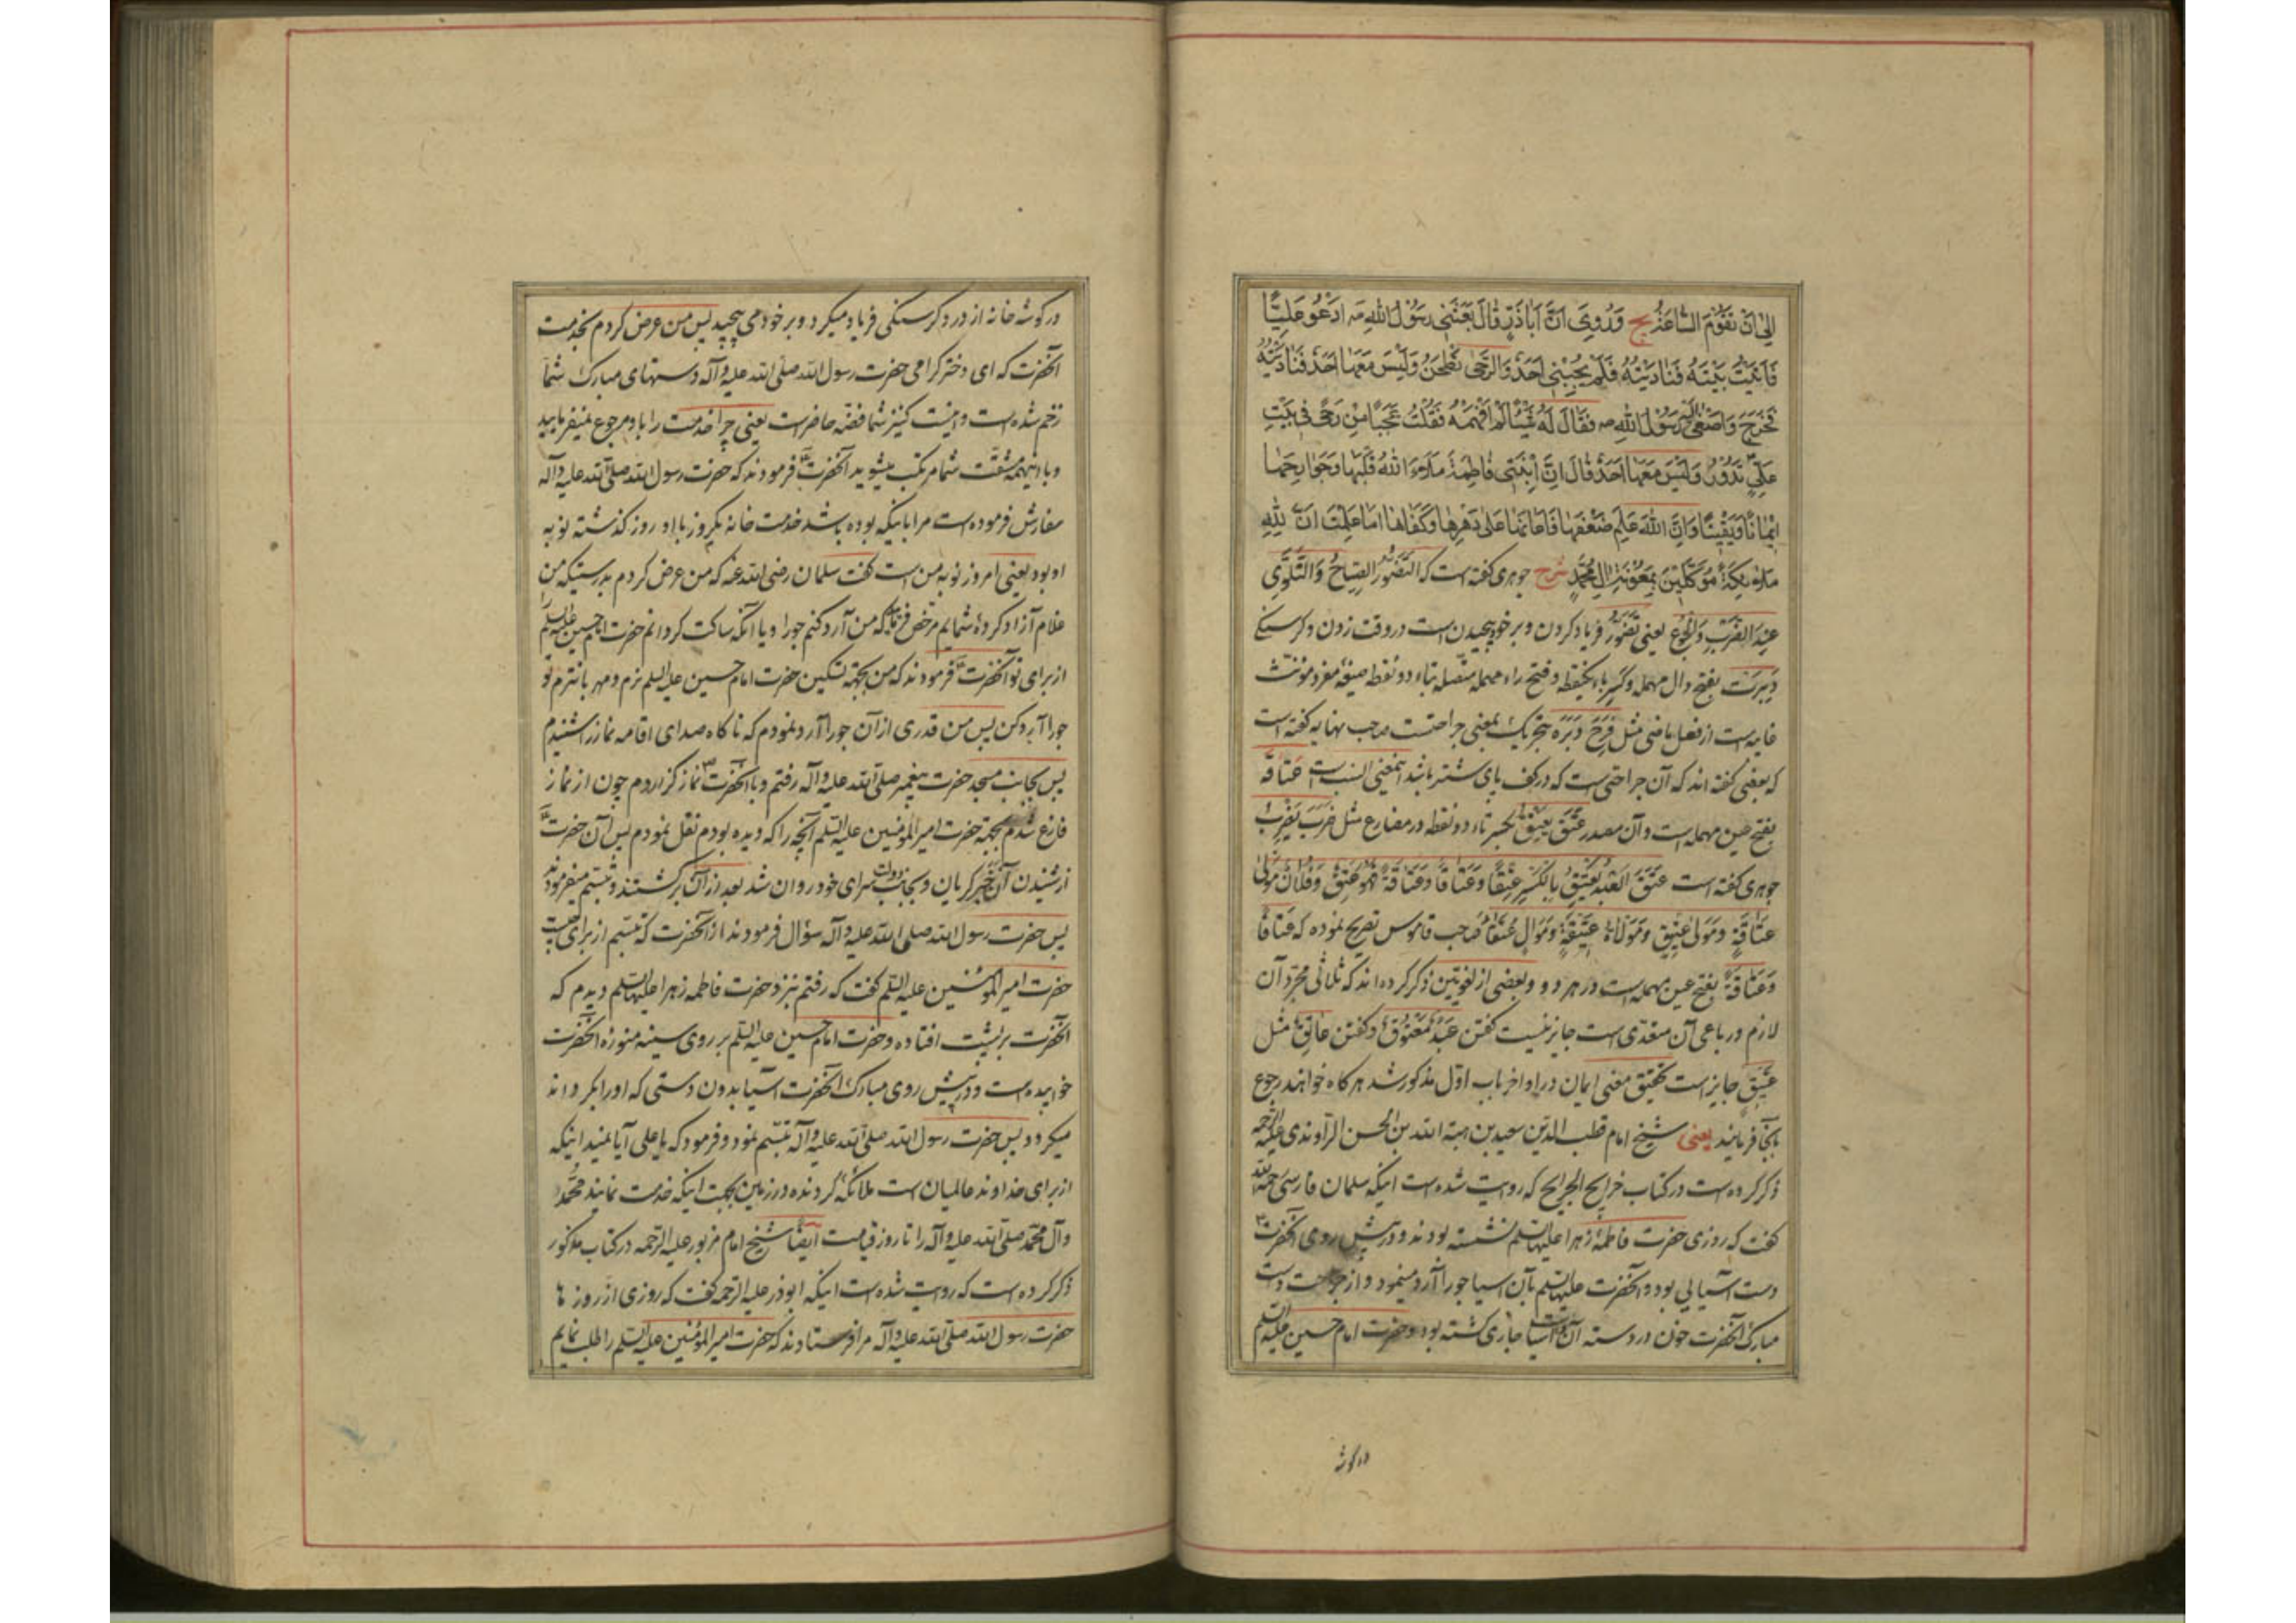 الی ان تقوم الساعة یج وَرُوِیَ اَنَّ اَبَاذَرٍّ قَالَ بَعَثَنِی رَسُوْلُ اللهِ صه اَدْعُو عَلِیًّا
فَاَتَیْتُ بَیْتَهُ فَنَادَیْتُهُ فَلَمْ یُجِبْنِی اَحَدٌ وَالرَّحٰی تَطْحَنُ وَلَیْسَ مَعَهَا اَحَدٌ فَنَادَیْتُهُ
فَخَرَجَ وَاَصْغٰی اِلَیْهِ رَسُوْلُ اللهِ صه فَقَالَ لَهُ شَیْئًا لَمْ اَفْهَمْهُ فَقُلْتُ عَجَبًا مِنْ رَحًی فِی بَیْتِ
عَلِیٍّ تَدُوْرُ وَلَیْسَ مَعَهَا اَحَدٌ قَالَ اِنَّ اِبْنَتِی فَاطِمَةَ مَلَاءَ اللهُ قَلْبَهَا وَجَوَارِحَهَا
اِیْمَانًا وَیَقِیْنًا وَاِنَّ اللهَ عَلِمَ ضَعْفَهَا فَاَعَانَهَا عَلٰی دَهْرِهَا وَکَفَاهَا اَمَا عَلِمْتَ اَنَّ لِلهِ
مَلَائِکَةً مُوَکَّلِیْنَ بِمَعُوْنَةِ اٰلِ مُحَمَّدٍ شرح جوهری کفته است که التَّضَوُّرُ الصِّیَاحُ وَالتَّلَوِّی
عِنْدَ الضَّرْبِ وَالْجُوْعِ یعنی تَضَوُّر فریاد کردن و بر خود پیچیدن است در وقت زدن و کرسنکی
دَبِرَتْ بفتح دال مهمله و کسر باء یکنقطه و فتح راء مهمله متصله بتاء دو نقطه صیغه مفرد مونث
غایبه است از فعل ماضی مثل فَرِحَ دَبَرَه بتحریک بمعنی جراحتست صاحب نهایه کفته است
که بعضی کفته اند که آن جراحتی است که در کف پای شتر باشد اینمعنی انسب است عَتَاقَة
بفتح عین مهمله است و آن مصدر عَتَقَ یَعْتِقُ بکسر تاء دو نقطه در مضارع مثل ضَرَبَ یَضْرِبُ
جوهری کفته است عَتَقَ الْعَبْدُ یَعْتِقُ بِالْکَسْرِ عِتْقًا وَعَتَاقًا وَعَتَاقَةً فَهُوَ عَتِیْقٌ وَفُلَانٌ مَوْلٰی
عَتَاقَةٍ وَمَوْلٰی عَتِیْقٍ وَمَوْلَاةٌ عَتِیْقَةٌ وَمَوَالٍ عُتَقَاءُ صاحب قاموس تصریح نموده که عَتَاقًا
وَعَتَاقَةً بفتح عین مهمله است در هر دو و بعضی از لغویین ذکر کرده اند که ثلاثی مجرد آن
لازم و رباعی آن متعدی است جایز نیست کفتن عَبْدٌ مَعْتُوْقٌ و کفتن عَاتِقٌ مثل
عَتِیْقٍ جایز است تحقیق معنی ایمان در اواخر باب اول مذکور شد هر کاه خواهند رجوع
بآنجا فرمایند یعنی شیخ امام قطب الدین سعید بن هبة الله بن الحسن الراوندی علیه الرحمه
ذکر کرده است در کتاب خرایج الجرایح که روایت شده است اینکه سلمان فارسی رحمه الله
کفت که روزی حضرت فاطمه زهرا علیها السلم نشسته بودند و در پیش روی آنحضرت
دست آسیایی بود و آنحضرت علیها السلم بآن اسیا جو را آرد مینمود و از جراحت دست
مبارک آنحضرت خون در دسته آن دست آسیا جاری کشته بود و حضرت امام حسین علیه السلم
در کوشه
در کوشه خانه از درد کرسنکی فریاد میکرد و بر خود می پیچید پس من عرض کردم بخدمت
آنحضرت که ای دختر کرامی حضرت رسول الله صلی الله علیه و آله دستهای مبارک شما
زخم شده است و اینست کنیز شما فضه حاضر است یعنی چرا خدمت را باو مرجوع نمیفرمایید
و با اینهمه مشقت شما مرتکب میشوید آنحضرت فرمودند که حضرت رسول الله صلی الله علیه و آله
سفارش فرموده است مرا باینکه بوده باشد خدمت خانه یکروز با او روز کذشته نوبه
او بود یعنی امروز نوبه من است کفت سلمان رضی الله عنه که من عرض کردم بدرستیکه من
غلام آزاد کرده شمایم مرخص فرما که من آرد کنم جو را و یا انکه ساکت کردانم حضرت امام حسین علیه السلم
از برای تو آنحضرت فرمودند که من بجهة تسکین حضرت امام حسین علیه السلم نرم و مهربانترم تو
جو را آرد کن پس من قدری از آن جو را آرد نمودم که ناکاه صدای اقامه نماز را شنیدم
پس بجانب مسجد حضرت پیغمبر صلی الله علیه و آله رفتم و با آنحضرت نماز کزاردم چون از نماز
فارغ شدم بجهة حضرت امیر المؤمنین علیه السلم آنچه را که دیده بودم نقل نمودم پس آن حضرت
از شنیدن آن خبر کریان و بجانب دولت سرای خود روان شد بعد از آن برکشتند و تبسم میفرمودند
پس حضرت رسول الله صلی الله علیه و آله سؤال فرمودند از آنحضرت که تبسم از برای چیست
حضرت امیر المؤمنین علیه السلم کفت که رفتم نزد حضرت فاطمه زهرا علیها السلم دیدم که
آنحضرت بر پشت افتاده و حضرت امام حسین علیه السلم بر روی سینه منوره آنحضرت
خوابیده است و در پیش روی مبارک آنحضرت آسیا بدون دستی که او را بکرداند
میکردد پس حضرت رسول الله صلی الله علیه و آله تبسم نمود و فرمود که یا علی آیا نمیدانی اینکه
از برای خداوند عالمیان است ملائکه کردنده در زمین بجهت اینکه خدمت نمایند محمد
و آل محمد صلی الله علیه و آله را تا روز قیامت ایضا شیخ امام مزبور علیه الرحمه در کتاب مذکور
ذکر کرده است که روایت شده است اینکه ابوذر علیه الرحمه کفت که روزی از روزها
حضرت رسول الله صلی الله علیه و آله مرا فرستادند که حضرت امیر المؤمنین علیه السلم را طلب نمایم